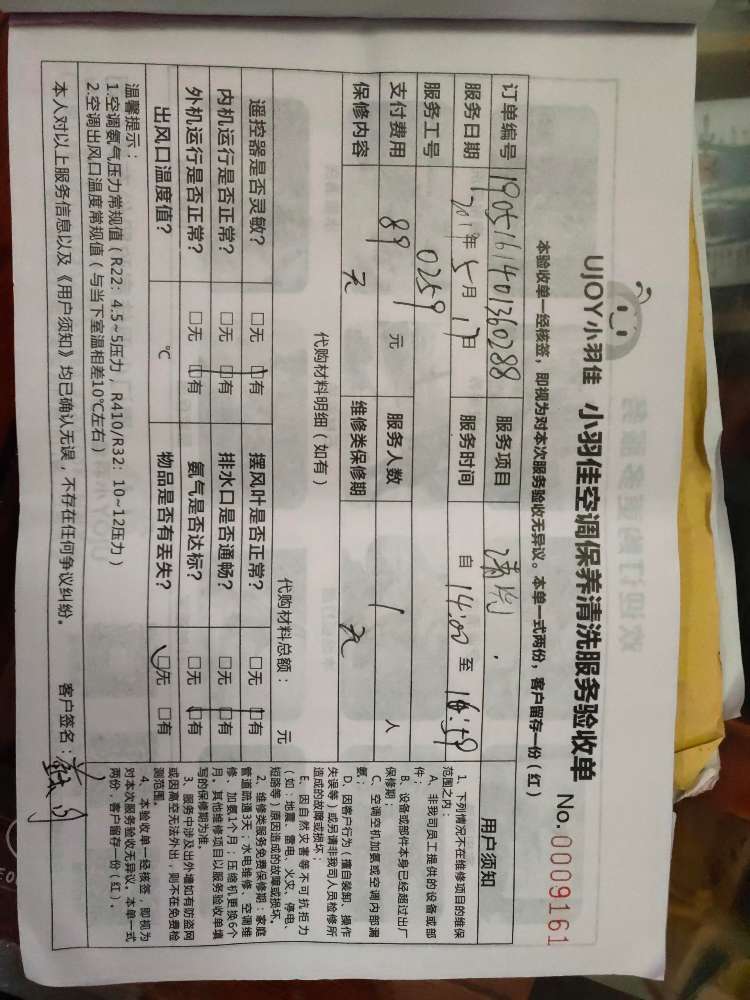 UJOY小羽佳 小羽佳空调保养清洗服务验收单 No.0009161
本验收单一经核签，即视为对本次服务验收无异议。本单一式两份，客户留存一份（红）
订单编号 1905161401360288 服务项目 清洗
服务日期 2019年5月17日 服务时间 自 14:00 至 16:59
服务工号 0259
支付费用 89 元 服务人数 1 人
保修内容 无 维修类保修期 无
代购材料明细（如有）
代购材料总额： 元
遥控器是否灵敏？ □无 □有 摆风叶是否正常？ □无 □有
内机运行是否正常？ □无 □有 排水口是否通畅？ □无 □有
外机运行是否正常？ □无 □有 氨气是否达标？ □无 □有
出风口温度值？ ℃ 物品是否有丢失？ □无 □有
温馨提示：
1.空调氨气压力常规值（R22：4.5~5压力，R410/R32：10~12压力）
2.空调出风口温度常规值（与当下室温相差10℃左右）
本人对以上服务信息以及《用户须知》均已确认无误，不存在任何争议纠纷。 客户签名：
用户须知
1、下列情况不在维修项目的维保
范围之内：
A、非我司员工提供的设备或部
件；
B、设备或部件本身已经超过出厂
保修期；
C、空调空机加氨或空调内部漏
氨；
D、因客户行为（擅自装卸、操作
失误等）或另请非我司人员检修所
造成的故障或损坏；
E、因自然灾害等不可抗拒力
（如：地震、雷电、火灾、停电、
短路等）原因造成的故障或损坏。
2、维修类服务免费保修期：家庭
管道疏通3天；水电维修、空调维
修、加氨1个月；压缩机更换6个
月。其他维修项目以服务验收单填
写的保修期为准。
3、服务中涉及出外墙如有防盗网
或因高空无法外出，则不在免费检
测范围。
4、本验收单一经核签，即视为
对本次服务验收无异议。本单一式
两份，客户留存一份（红）。